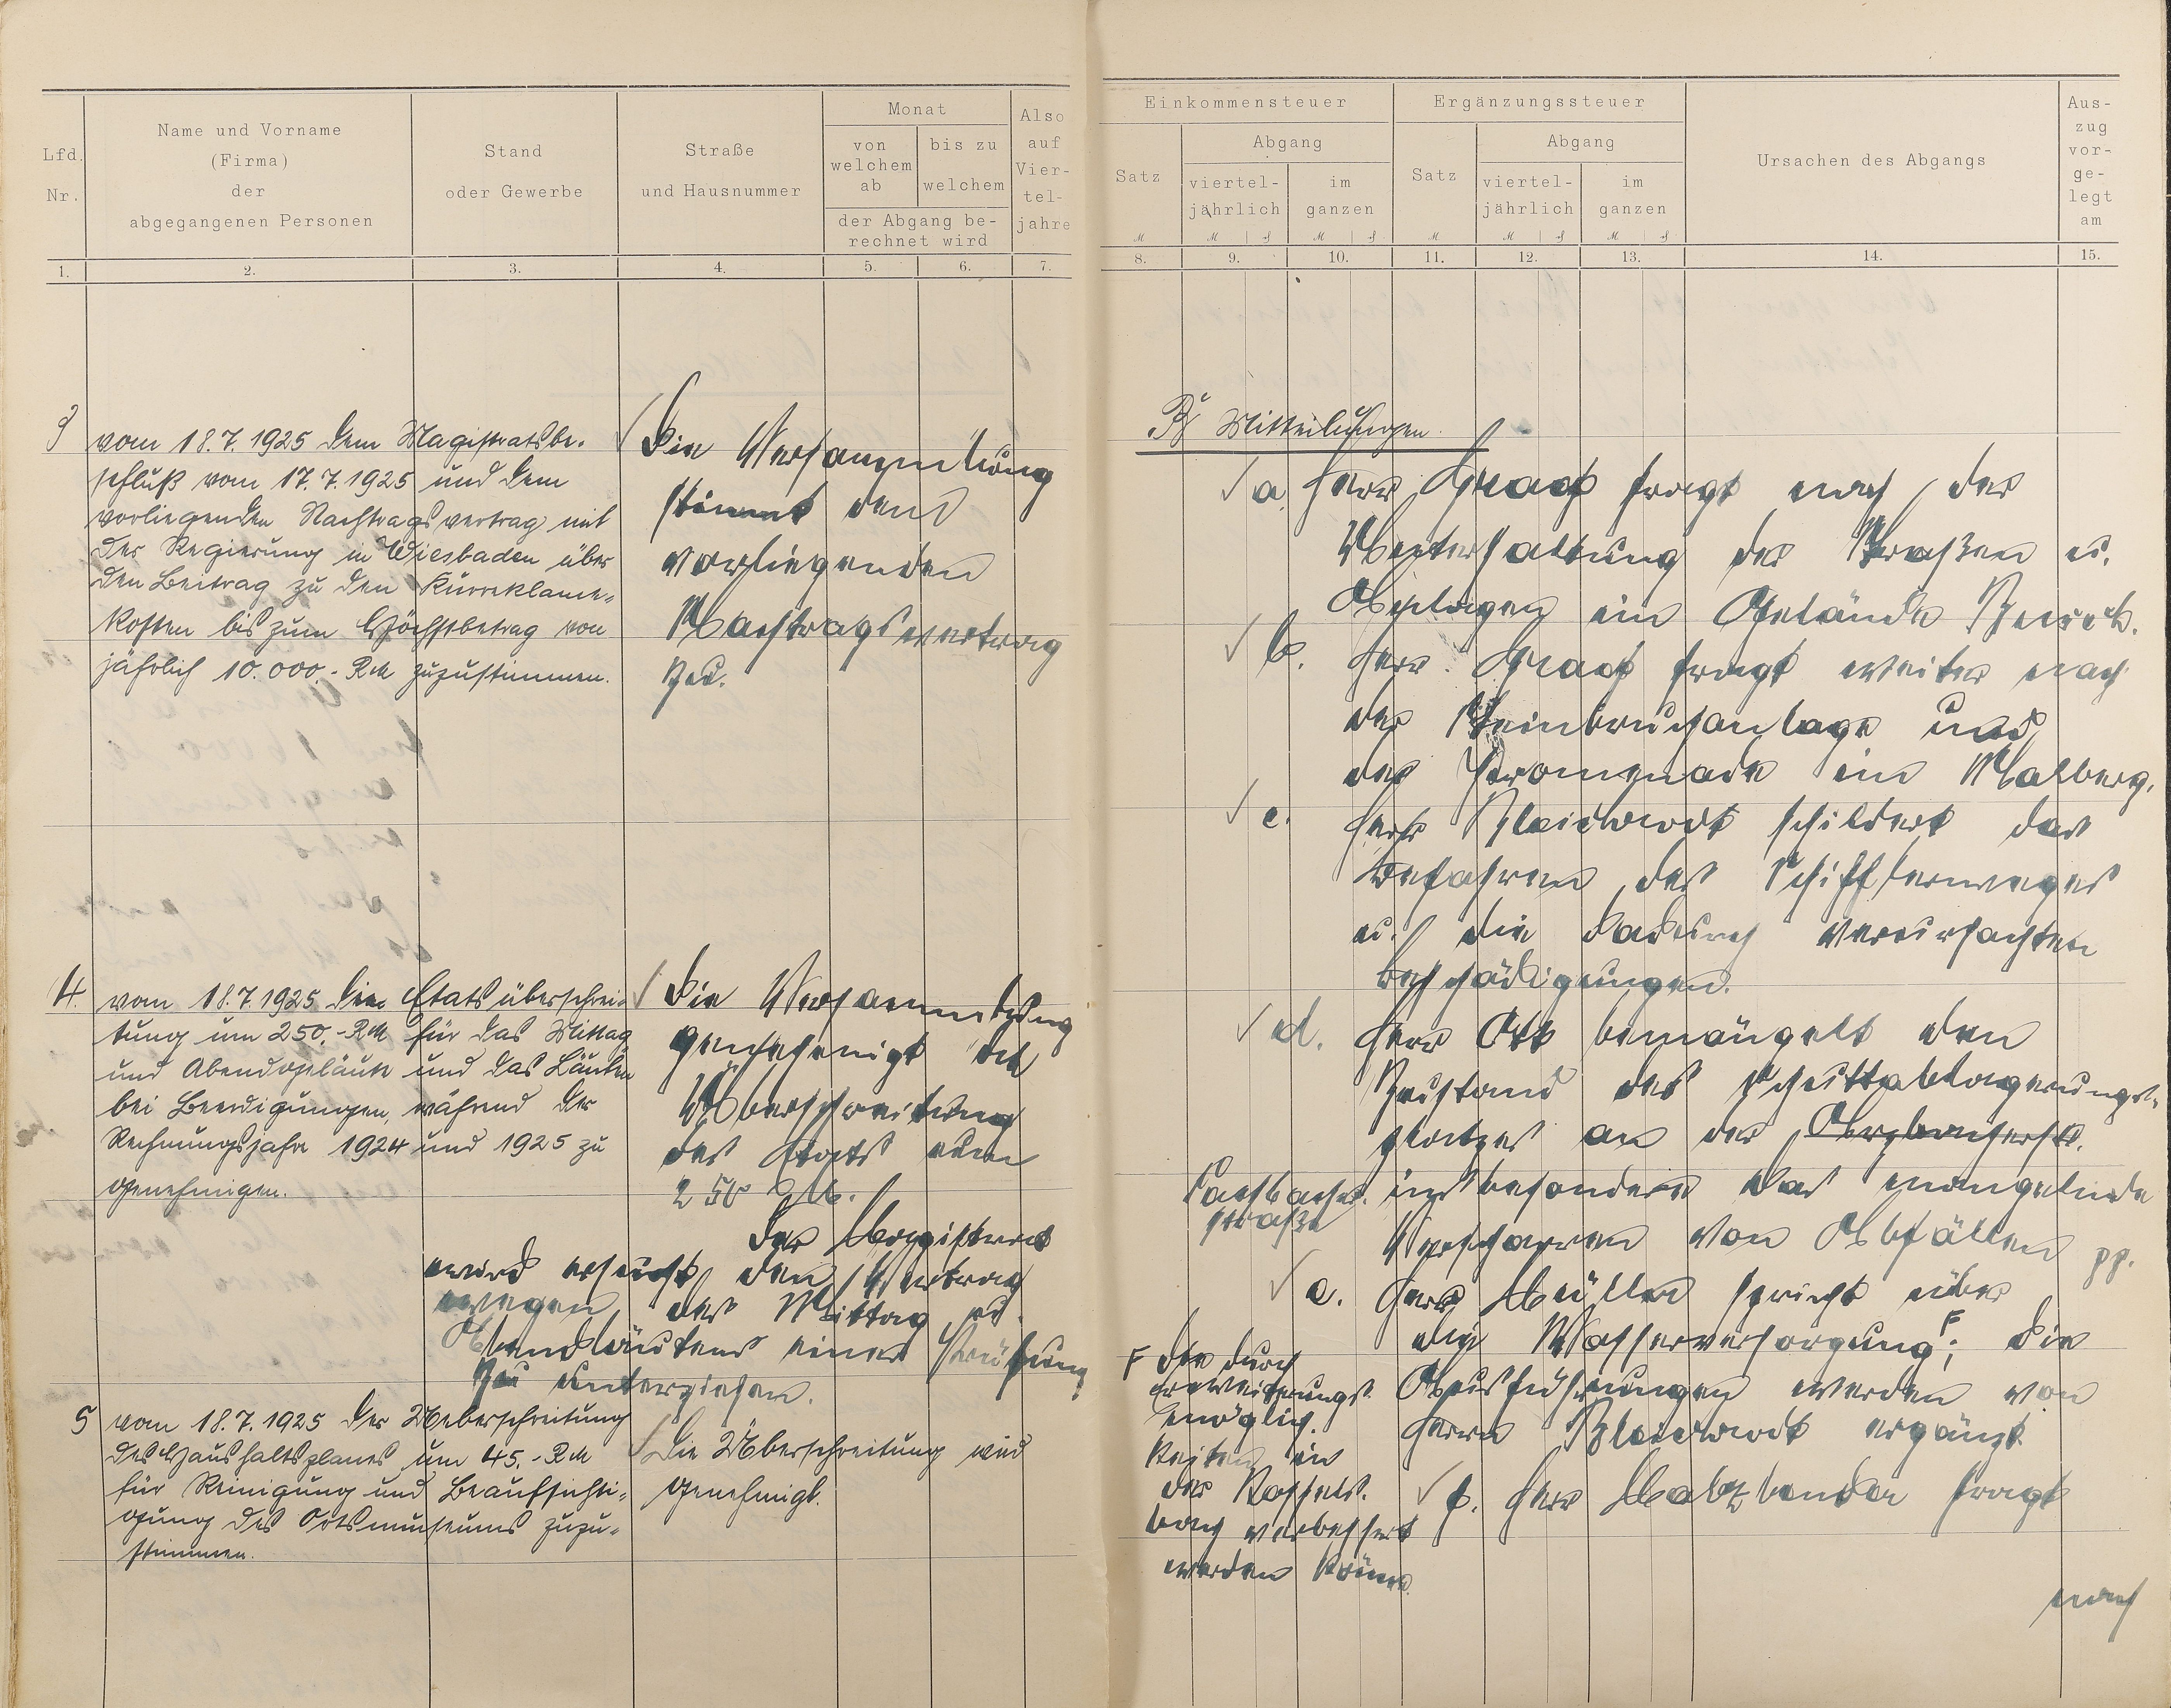 Lfd.
Nr.
Name und Vorname
(Firma)
der
abgegangenen Personen
Stand
oder Gewerbe
Straße
und Hausnummer
Monat
von
welchem
ab
bis zu
welchem
der Abgang be-
rechnet wird
Also
auf
Vier-
tel-
jahre
1.
2.
3.
4.
5.
6.
7.
3
vom 18.7.1925 dem Magistratsbe-
schluß vom 17.7.1925 und dem
vorliegenden Nachtragsvertrag mit
der Regierung in Wiesbaden über
den Beitrag zu den Kurreklame-
kosten bis zum Höchstbetrag von
jährlich 10.000.- RM zuzustimmen.
Die Versammlung
stimmt dem
vorliegenden
Nachtragsvertrag
zu.
4.
vom 18.7.1925 die Etatsüberschrei-
tung um 250.- RM für das Mittag
und Abendgeläute und das Läuten
bei Beerdigungen, während der
Rechnungsjahre 1924 und 1925 zu
genehmigen.
Die Versammlung
genehmigt die
Überschreitung
des Etats um
250 M.
Der Magistrat
wird ersucht, den Vertrag
wegen des Mittag u.
Abendläutens einer Prüfung
zu unterziehen.
5
vom 18.7.1925 der Ueberschreitung
des Haushaltsplanes um 45.- RM
für Reinigung und Beaufsichti-
gung des Ortsmuseums zuzu-
stimmen.
Die Überschreitung wird
genehmigt.
Einkommensteuer
Satz
M
Abgang
viertel-
jährlich
im
ganzen
Ergänzungssteuer
Satz
M
Abgang
viertel-
jährlich
im
ganzen
Ursachen des Abgangs
Aus-
zug
vor-
ge-
legt
am
8.
9.
10.
11.
12.
13.
14.
15.
Mitteilungen.
a. Herr Graaf fragt nach der
Unterhaltung der Straßen u.
Anlagen im Gelände
b. Herr Graaf fragt weiter nach
der Steinbruchanlage und
der Promenade im Malberg.
c. Herr schildert das
Befahren des weges
u. die dadurch verursachten
Beschädigungen.
d. Herr Ott bemängelt den
Zustand des Schuttablagerungs-
platzes an der
Fachbacher
straße
insbesondere das mangelnde
Verscharren von Abfällen pp.
e. Herr Müller spricht über
die Wasserversorgung F; die
Ausführungen werden von
Herrn ergänzt.
F die durch
erweiterungs-
möglich-
keiten in
der
bach verbessert
werden könne
f. Herr Malzbender fragt
nach